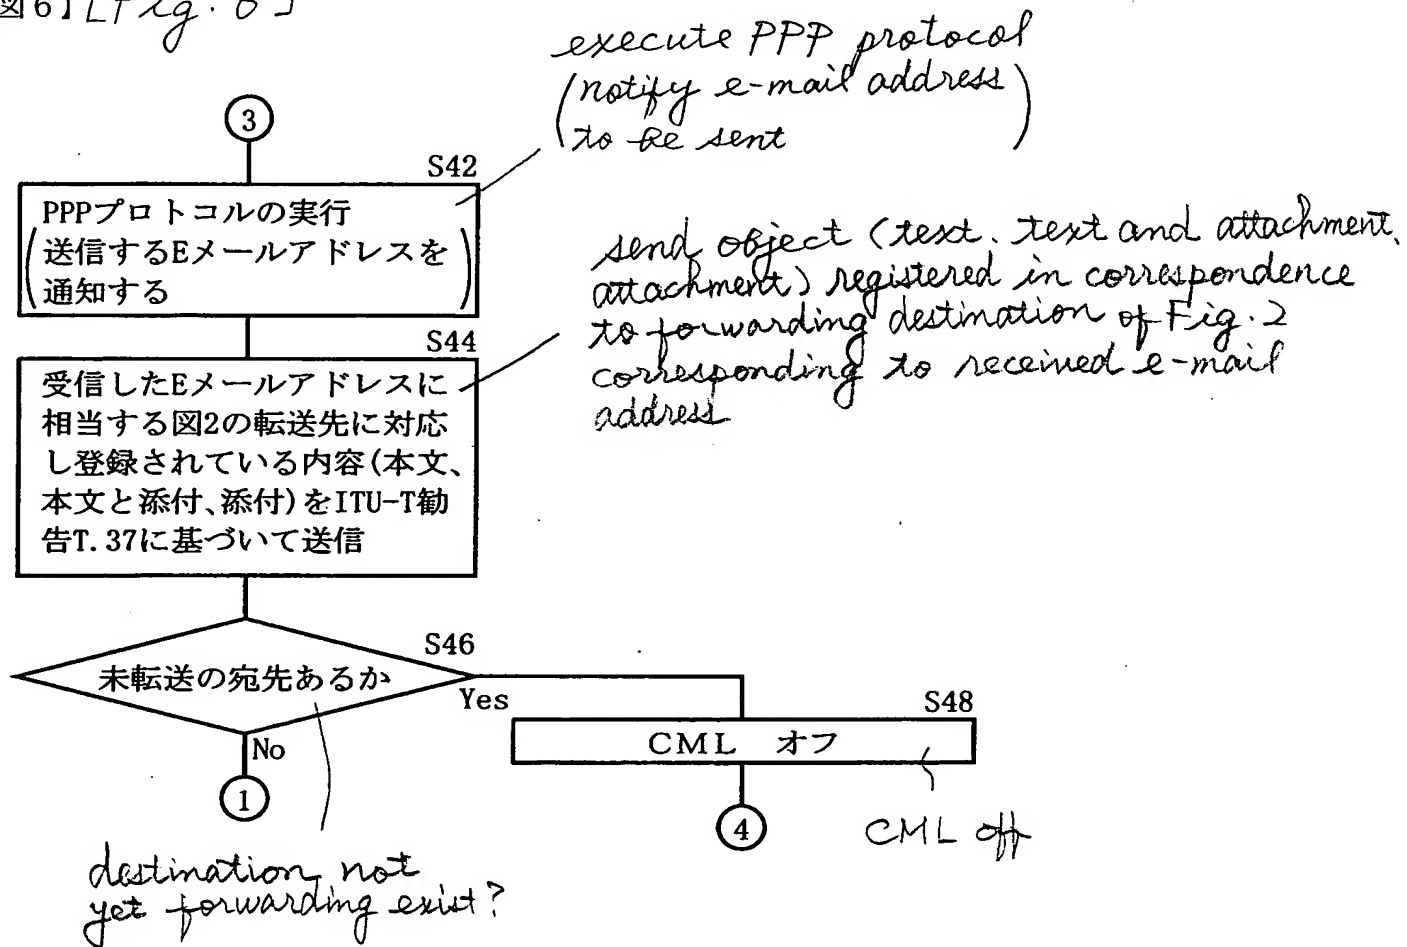 図6】[Fig. 6]
execute PPP protocol
(notify e-mail address
to be sent)
③
S42
PPPプロトコルの実行
(送信するEメールアドレスを
通知する)
send object (text. text and attachment.
attachment) registered in correspondence
to forwarding destination of Fig. 2
corresponding to received e-mail
address
S44
受信したEメールアドレスに
相当する図2の転送先に対応
し登録されている内容(本文、
本文と添付、添付)をITU-T勧
告T.37に基づいて送信
S46
未転送の宛先あるか
Yes
No
①
S48
CML オフ
④
CML off
destination not
yet forwarding exist?